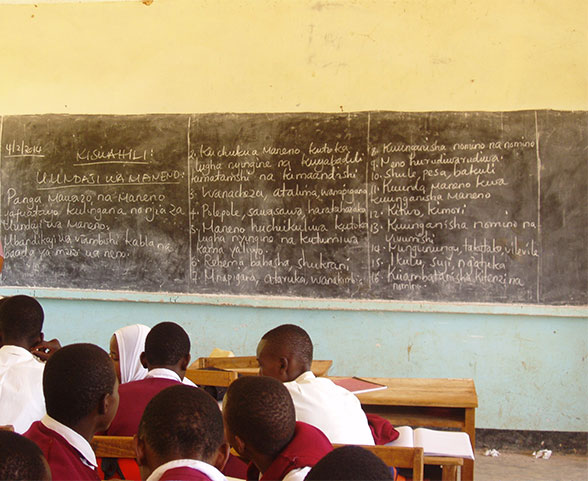 4/2/2014
KISWAHILI:
UUNDAJI WA MANENO:
Panga Mawazo na Maneno
yafuatayo kulingana na njia za
Uundaji wa Maneno.
Ubandikaji wa viambishi kabla na
baada ya mzizi wa neno.
2. Kuchukua Maneno kutoka
lugha nyingine na kuyabadili
kimatamshi na kimaandishi
3. Wanacheza, atalima, wamepigana
4. Polepole, sawasawa, harakaharaka
5. Maneno huchukuliwa kutoka
lugha nyingine na kutumiwa
kama yalivyo.
6. Rehema bahasha, shukrani
7. Mnapigwa, ataruka,
8. Kuunganisha nomino na nomino
9. Neno hurudiwarudiwa.
10. Shule, pesa, bakuli
11. Kuunda Maneno kwa
kuunganisha Maneno
12. Kitwo, kimori
13. Kuunganisha nomino na
kivumishi
14. vilevile
15.
16. Kuambatanisha kitenzi na
nomino